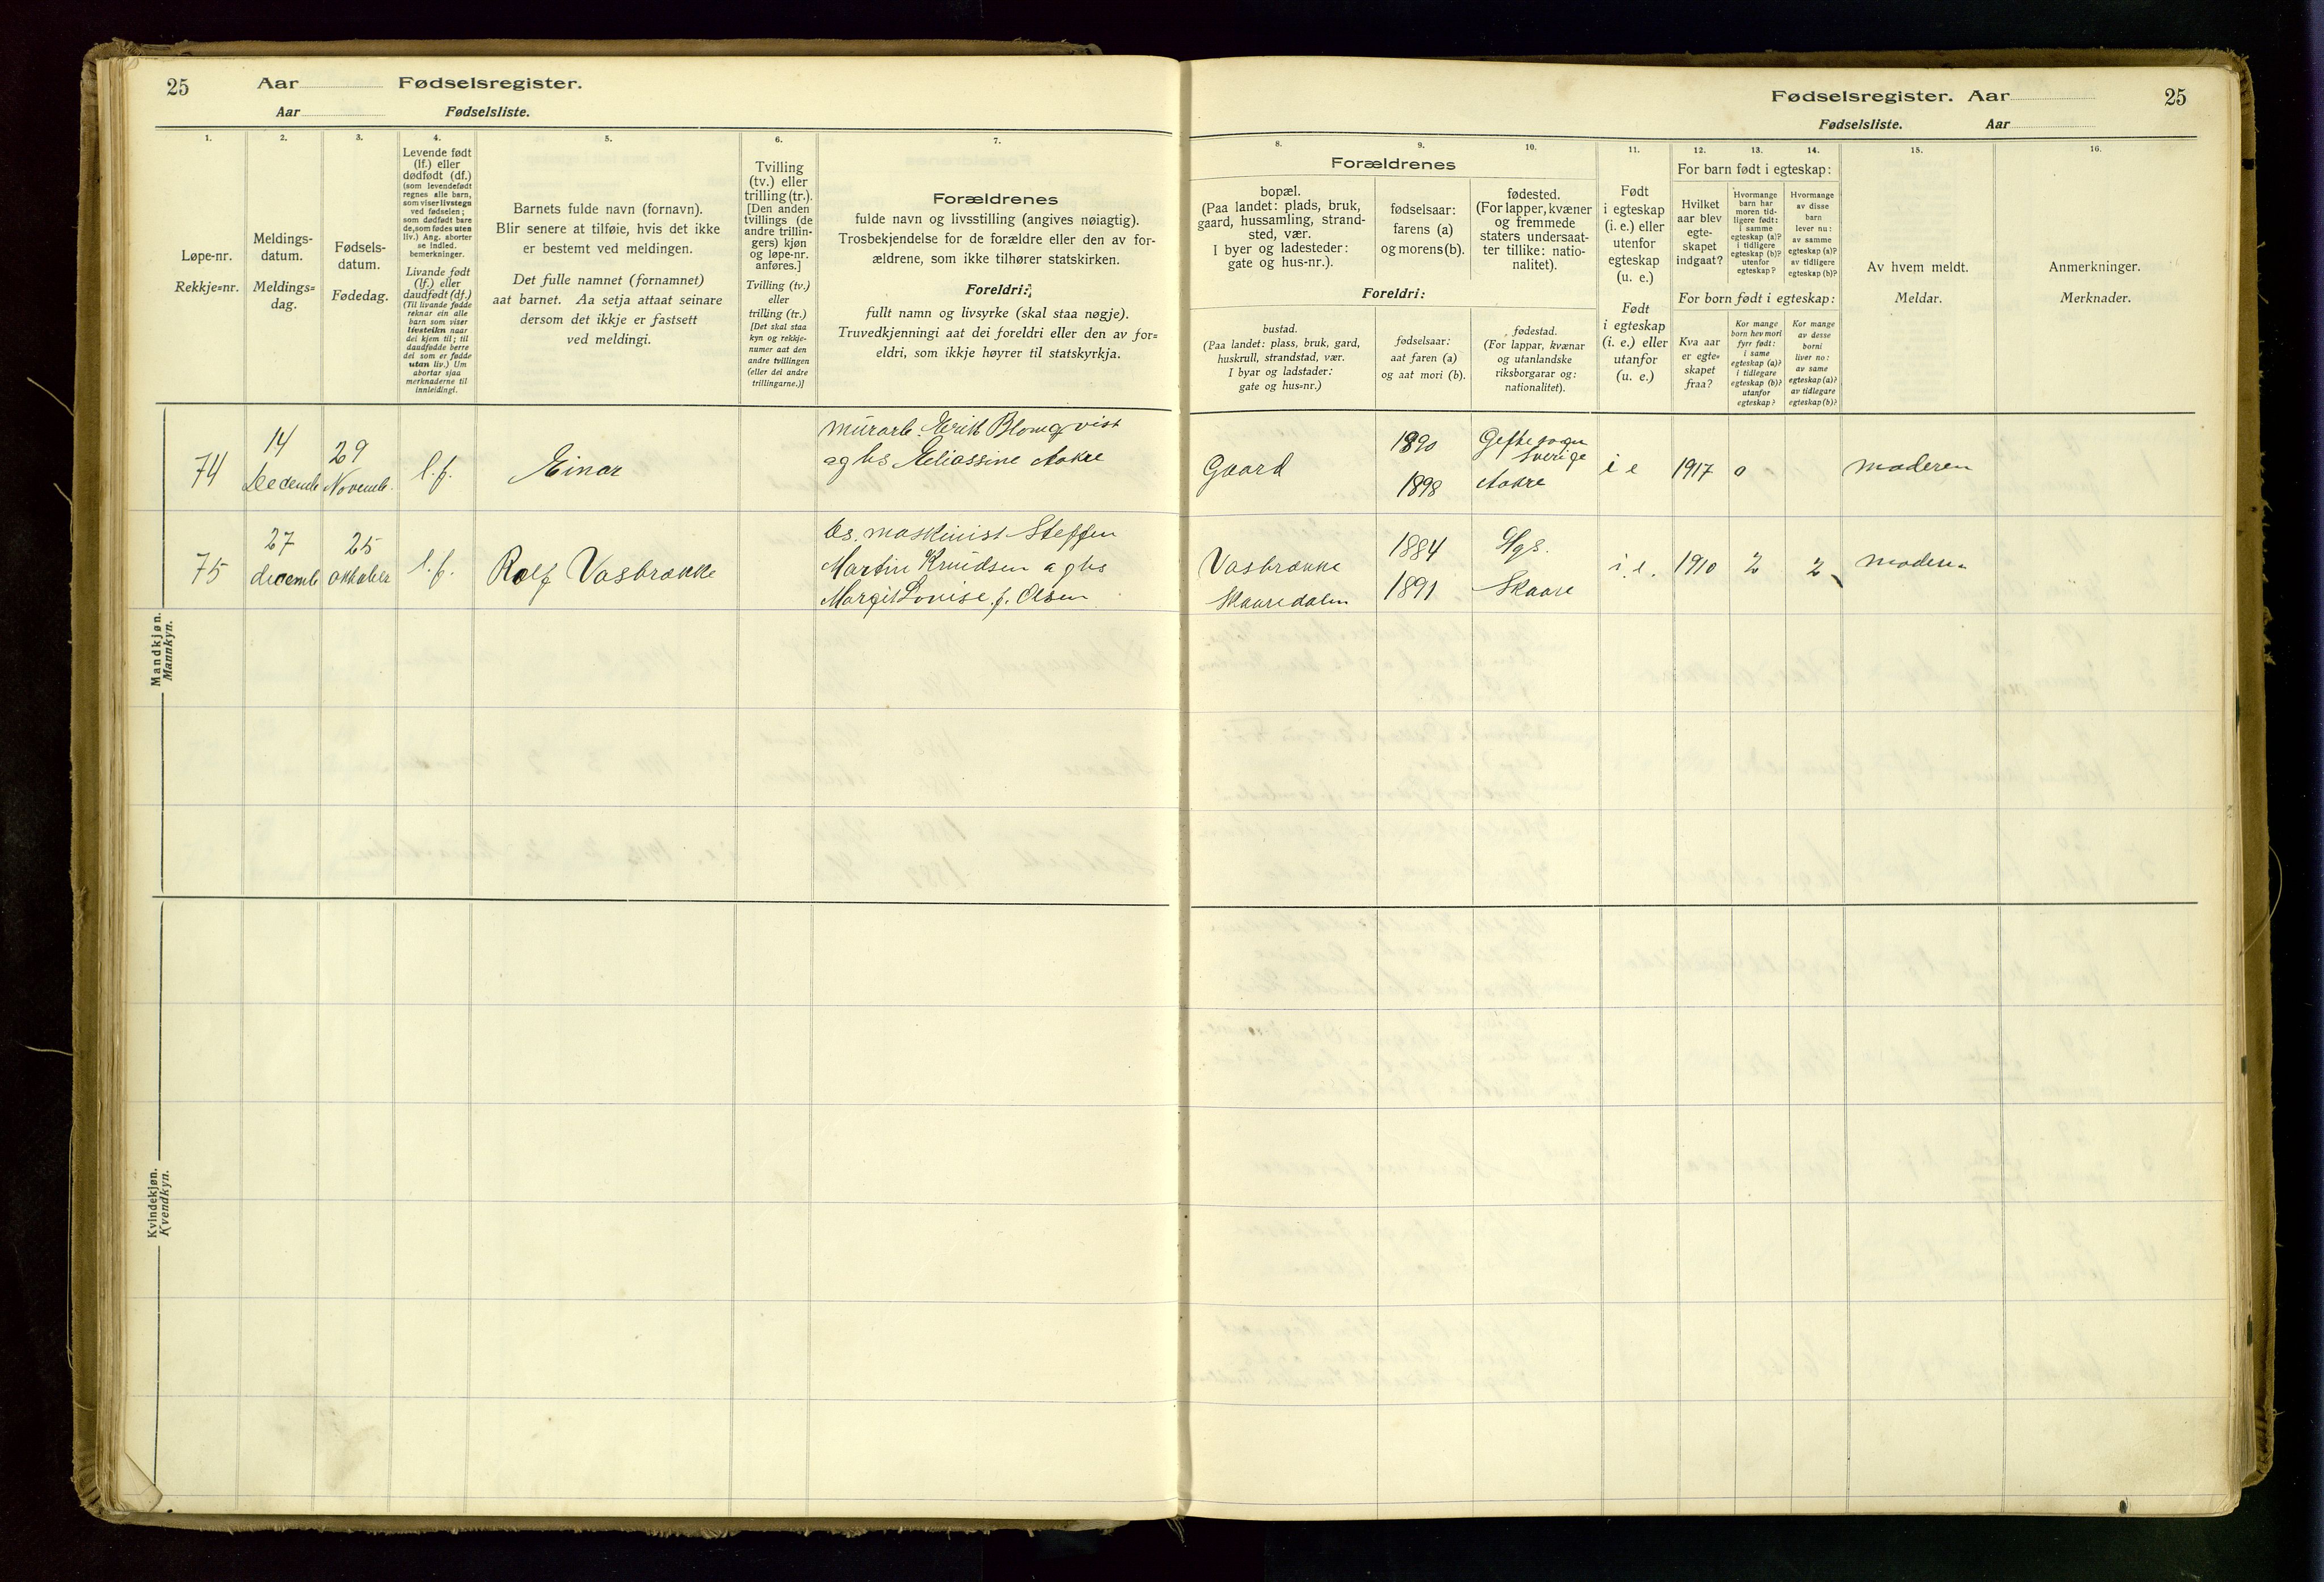 25
Aar
Fødselsregister.
Aar
Fødselsliste.
1.
Løpe-nr.
Rekkje=nr.
2.
Meldings-
datum.
Meldings=
dag.
3.
Fødsels-
datum.
Fødedag.
4.
Levende født
(lf.) eller
dødfødt (df.)
(som levendefødt
regnes alle barn,
som viser livstegn
ved fødselen;
som dødfødt bare
de, som fødes uten
liv.) Ang. aborter
se indled.
bemerkninger.
Livande født
(lf.) eller
daudfødt (df.)
(Til livande fødde
reknar ein alle
barn som viser
livsteikn naar
dei kjem til; til
daudfødde berre
dei som er fødde
utan liv.) Um
abortar sjaa
merknaderne til
innleidingi.
5.
Barnets fulde navn (fornavn).
Blir senere at tilføie, hvis det ikke
er bestemt ved meldingen.
Det fulle namnet (fornamnet)
aat barnet. Aa setja attaat seinare
dersom det ikkje er fastsett
ved meldingi.
6.
Tvilling
(tv.) eller
trilling (tr.).
[Den anden
tvillings (de
andre trillin-
gers) kjøn
og løpe-nr.
anføres.]
Tvilling (tv.)
eller
trilling (tr.)
[Det skal staa
kyn og rekkje-
numer aat den
andre tvillingen
(eller dei andre
trillingarne.)]
7.
Forældrenes
fulde navn og livsstilling (angives nøiagtig).
Trosbekjendelse for de forældre eller den av for-
ældrene, som ikke tilhører statskirken.
Foreldri:
fullt namn og livsyrke (skal staa nøgje).
Truvedkjenningi aat dei foreldri eller den av for=
eldri, som ikkje høyrer til statskyrkja.
Mandkjøn.
Mannkyn.
74
14
Decemb
29
Novemb.
l.f.
Einar
murarb. Erik Blomqvist
og hs Eliassine Aakre
75
27
decemb
25
oktober
l.f.
Rolf Vasbrække
bs. maskinist Steffen
Martin Knudsen og hs
Margit Lovise f. Olsen
Kvindekjøn.
Kvendkyn.
Fødselsregister. Aar
25
Fødselsliste.
Aar
8.
9.
10.
Forældrenes
bopæl.
(Paa landet: plads, bruk,
gaard, hussamling, strand-
sted, vær.
I byer og ladesteder:
gate og hus-nr.).
fødselsaar:
farens (a)
og morens (b).
fødested.
(For lapper, kvæner
og fremmede
staters undersaat-
ter tillike: natio-
nalitet).
Foreldri:
bustad.
(Paa landet: plass, bruk, gard,
huskrull, strandstad, vær.
I byar og ladstader:
gate og hus=nr.)
fødselsaar:
aat faren (a)
og aat mori (b).
fødestad.
(For lappar, kvænar
og utanlandske
riksborgarar og:
nationalitet).
11.
Født
i egteskap
(i. e.) eller
utenfor
egteskap
(u. e.)
Født
i egteskap
(i. e.) eller
utanfor
egteskap
(u. e.)
12.
13.
14.
For barn født i egteskap:
Hvilket
aar blev
egte-
skapet
indgaat?
Hvormange
barn har
moren tid-
ligere født:
i samme
egteskap (a)?
i tidligere
egteskap (b)?
utenfor
egteskap?
Hvormange
av disse
barn
lever nu:
av samme
egteskap (a)?
av tidligere
egteskap (b)?
For born født i egteskap:
Kva aar
er egte-
skapet
fraa?
Kor mange
born hev mori
fyrr født:
i same
egteskap (a)?
i tidlegare
egteskap (b)?
utanfor
egteskap?
Kor mange
av desse
borni
liver no:
av same
egteskap (a)?
av tidlegare
egteskap (b)?
15.
Av hvem meldt.
Meldar.
16.
Anmerkninger.
Merknader.
Gaard
1890
1898
Gefle sogn
Sverige
Aakre
i e
1917
0
moderen
Vasbrække
Skaaredalen
1884
1891
Hgs.
Skaare
i. e.
1910
2
2
moderen